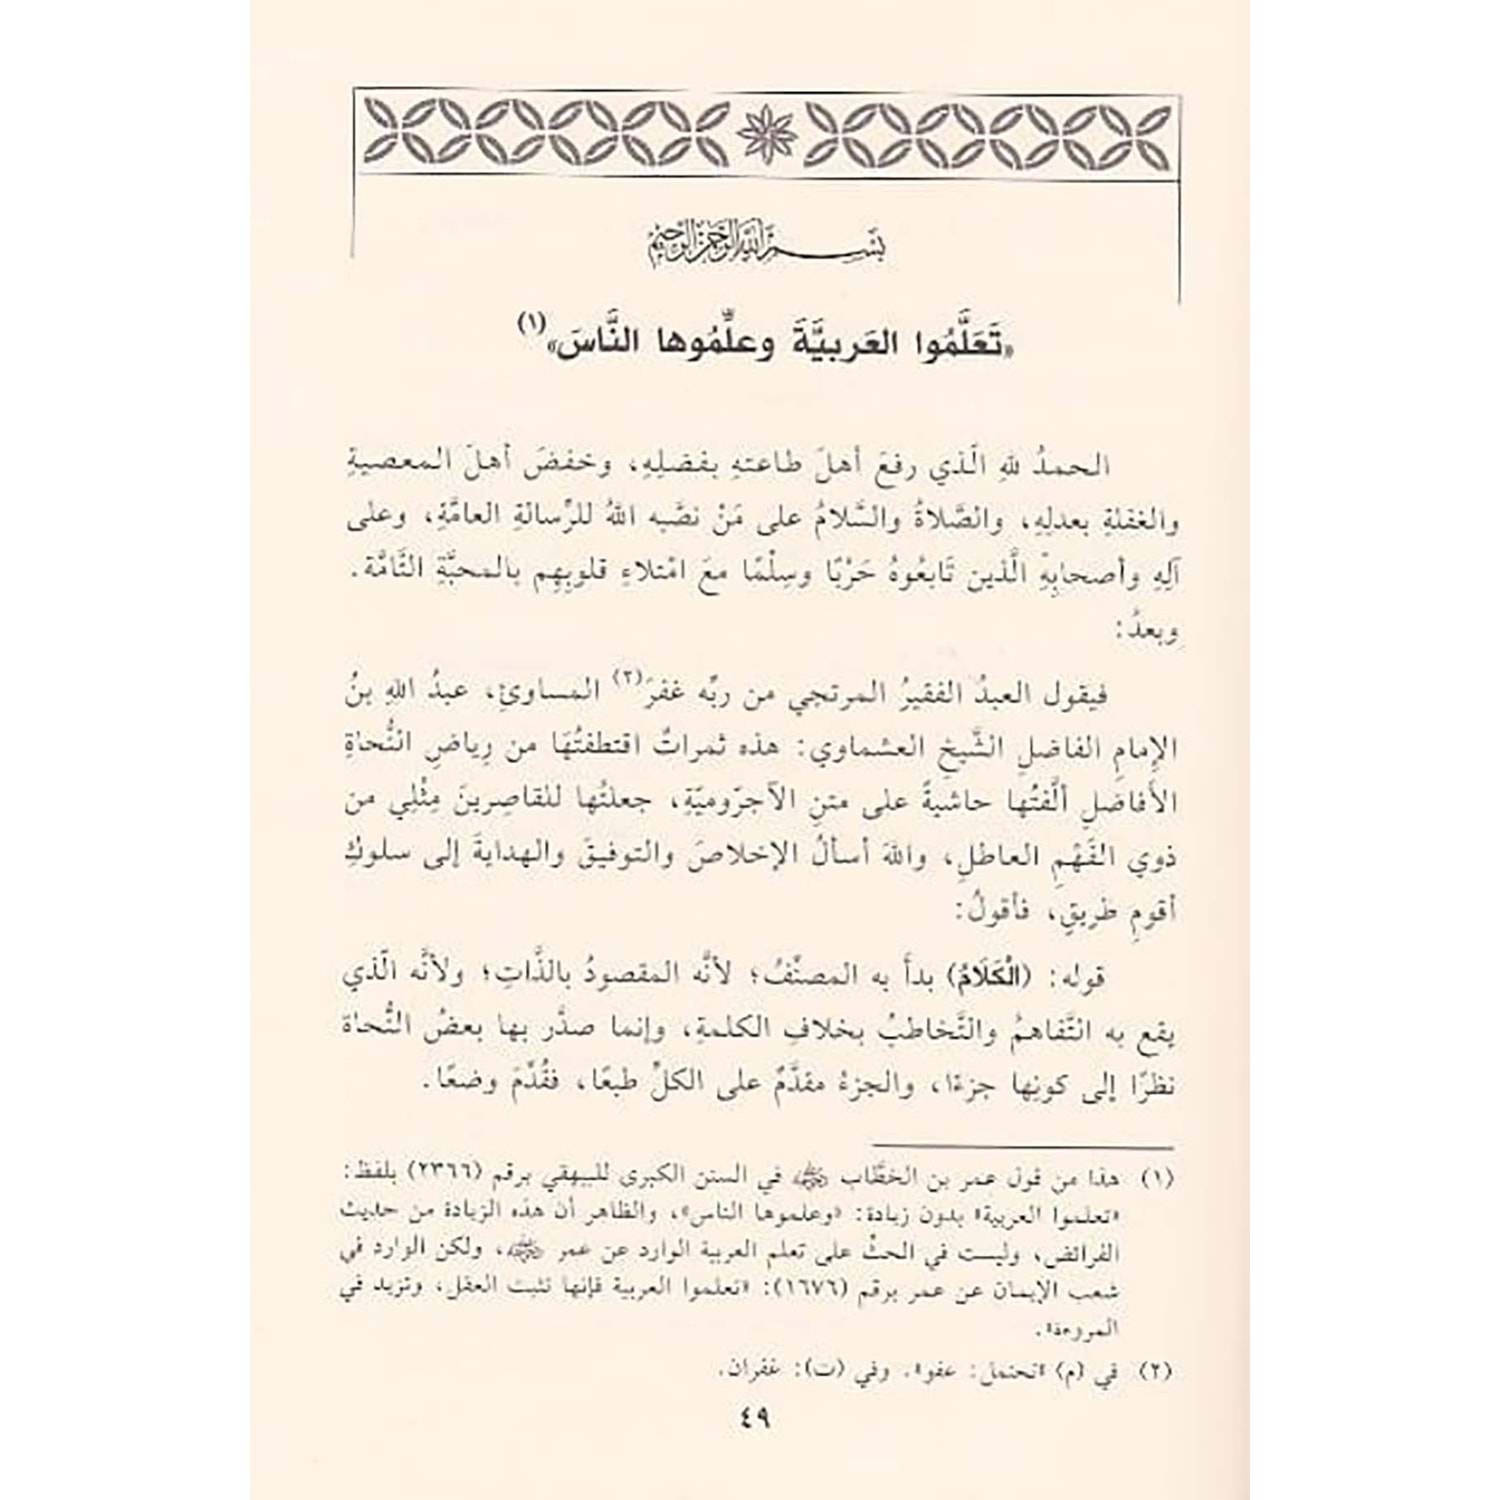 بِسْمِ اللَّهِ الرَّحْمَنِ الرَّحِيمِ
«تَعَلَّمُوا العَربيَّةَ وعلِّمُوها النَّاسَ»(١)
الحمدُ للهِ الّذي رفعَ أهلَ طاعتهِ بفضلِهِ، وخفضَ أهلَ المعصيةِ
والغفلةِ بعدلِهِ، والصَّلاةُ والسَّلامُ على مَنْ نصَّبه اللهُ للرِّسالةِ العامَّةِ، وعلى
آلِهِ وأصحابِهِ الَّذين تَابعُوهُ حَرْبًا وسِلْمًا معَ امْتلاءِ قلوبِهِم بالمحبَّةِ التَّامَّة.
وبعدُ:
فيقول العبدُ الفقيرُ المرتجي من ربِّه غفرَ(٢) المساوئِ، عبدُ اللهِ بنُ
الإمامِ الفاضلِ الشَّيخِ العشماوي: هذه ثمراتٌ اقتطفتُهَا من رِياضِ النُّحاةِ
الأَفاضَلِ ألَّفتُها حاشيةً على متنِ الآجرّوميّةِ، جعلتُها للقاصِرينَ مِثْلِي من
ذوي الفَهْمِ العاطلِ، واللهَ أسألُ الإخلاصَ والتوفيقَ والهدايةَ إلى سلوكِ
أقومِ طريقٍ، فأقولُ:
قوله: (الْكَلَامُ) بدأَ به المصنّفُ؛ لأنَّه المقصودُ بالذَّاتِ؛ ولأنَّه الّذي
يقع به التَّفاهمُ والتَّخاطبُ بخلافِ الكلمةِ، وإنما صدَّر بها بعضُ النُّحاة
نظرًا إلى كونِها جزءًا، والجزءُ مقدَّمٌ على الكلِّ طبعًا، فقُدِّمَ وضعًا.
(١) هذا من قول عمر بن الخطَّاب رضي الله عنه في السنن الكبرى للبيهقي برقم (٢٣٦٦) بلفظ:
«تعلموا العربية» بدون زيادة: «وعلموها الناس»، والظاهر أن هذه الزيادة من حديث
الفرائض، وليست في الحثّ على تعلم العربية الوارد عن عمر رضي الله عنه، ولكن الوارد في
شعب الإيمان عن عمر برقم (١٦٧٦): «تعلموا العربية فإنها تثبت العقل، وتزيد في
المروءة».
(٢) في (م) «تحتمل: عفو». وفي (ت): غفران.
٤٩